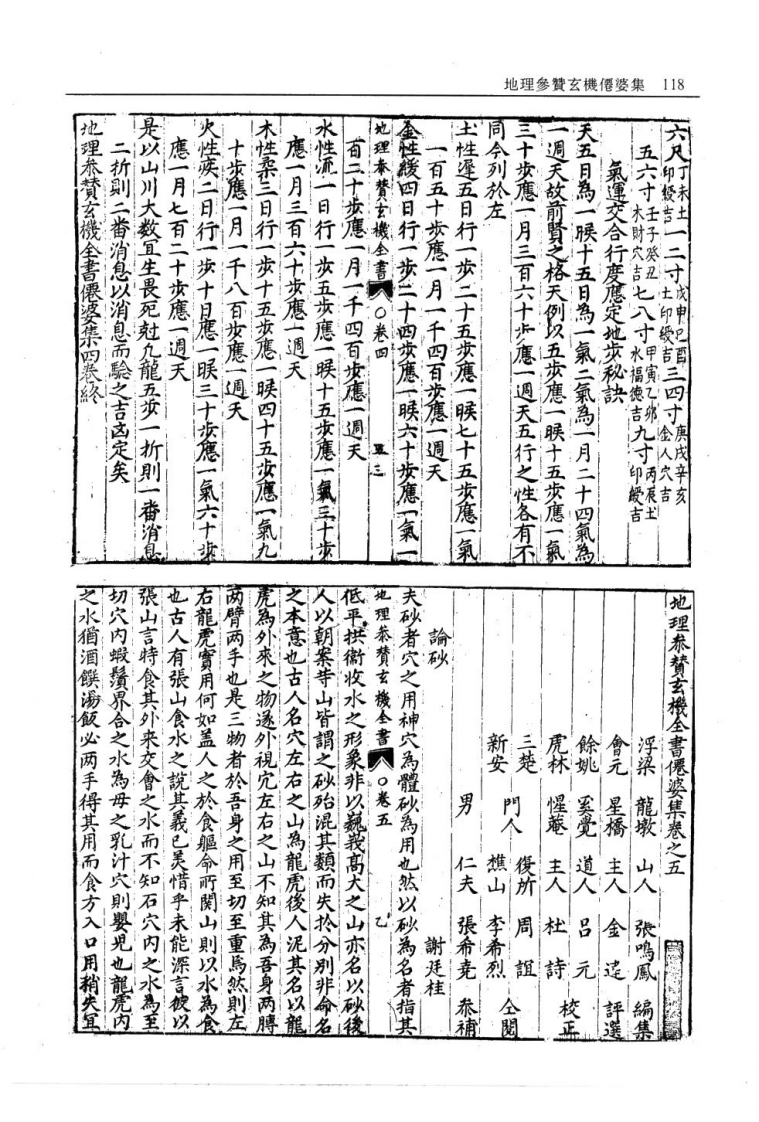 地理參贊玄機僊婆集 118
六尺丁未土印綬吉一二寸戊申己酉土印綬吉三四寸庚戌辛亥金人穴吉
五六寸壬子癸丑木財穴吉七八寸甲寅乙卯水福德吉九寸丙辰土印綬吉
氣運交合行度應定地步秘訣
天五日為一睺十五日為一氣二氣為一月二十四氣為
一週天故前賢之格天例以五步應一睺十五步應一氣
三十步應一月三百六十步應一週天五行之性各有不
同今列於左
土性遲五日行一步二十五步應一睺七十五步應一氣
一百五十步應一月一千四百步應一週天
金性緩四日行一步二十四步應一睺六十步應一氣一
地理参贊玄機全書 ○卷四 五三
百二十步應一月一千四百步應一週天
水性流一日行一步五步應一睺十五步應一氣三十步
應一月三百六十步應一週天
木性柔三日行一步十五步應一睺四十五步應一氣九
十步應一月一千八百步應一週天
火性疾二日行一步十日應一睺三十步應一氣六十步
應一月七百二十步應一週天
是以山川大数宜生畏死尅九龍五步一折則一番消息
二折則二番消息以消息而驗之吉凶定矣
地理参贊玄機全書僊婆集四卷終
地理参贊玄機全書僊婆集卷之五
浮梁 龍墩 山人 張鳴鳳 編集
會元 星橋 主人 金 達 評選
餘姚 至覺 道人 呂 元
虎林 惺菴 主人 杜 詩 校正
三楚 門人 復所 周 誼
新安 樵山 李希烈 仝閱
男 仁夫 張希堯 参補
論砂 謝廷桂
夫砂者穴之用神穴為體砂為用也然以砂為名者指其
地理参贊玄機全書 ○卷五 乙
低平拱衞收水之形象非以巍峩高大之山亦名以砂後
人以朝案等山皆謂之砂殆混其類而失於分別非命名
之本意也古人名穴左右之山為龍虎後人泥其名以龍
虎為外來之物遂外視穴左右之山不知其為吾身兩膊
兩臂兩手也是三物者於吾身之用至切至重焉然則左
右龍虎實用何如盖人之於食軀命所関山則以水為食
也古人有張山食水之說其義已美惜乎未能深言彼以
張山言特食其外來交會之水而不知石穴內之水為至
切穴內蝦鬚界合之水為母之乳汁穴則嬰児也龍虎内
之水猶酒饌湯飯必两手得其用而食方入口用稍失宜